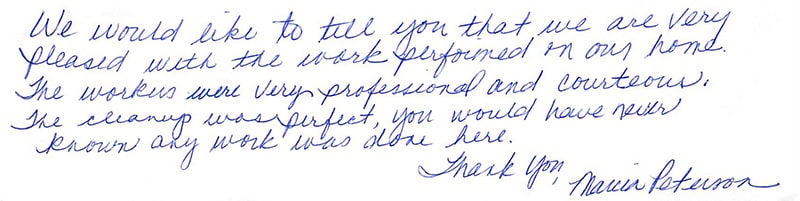 We would like to tell you that we are very
pleased with the work performed on our home.
The workers were very professional and courteous.
The cleanup was perfect, you would have never
known any work was done here.
Thank you, Marcia Peterson